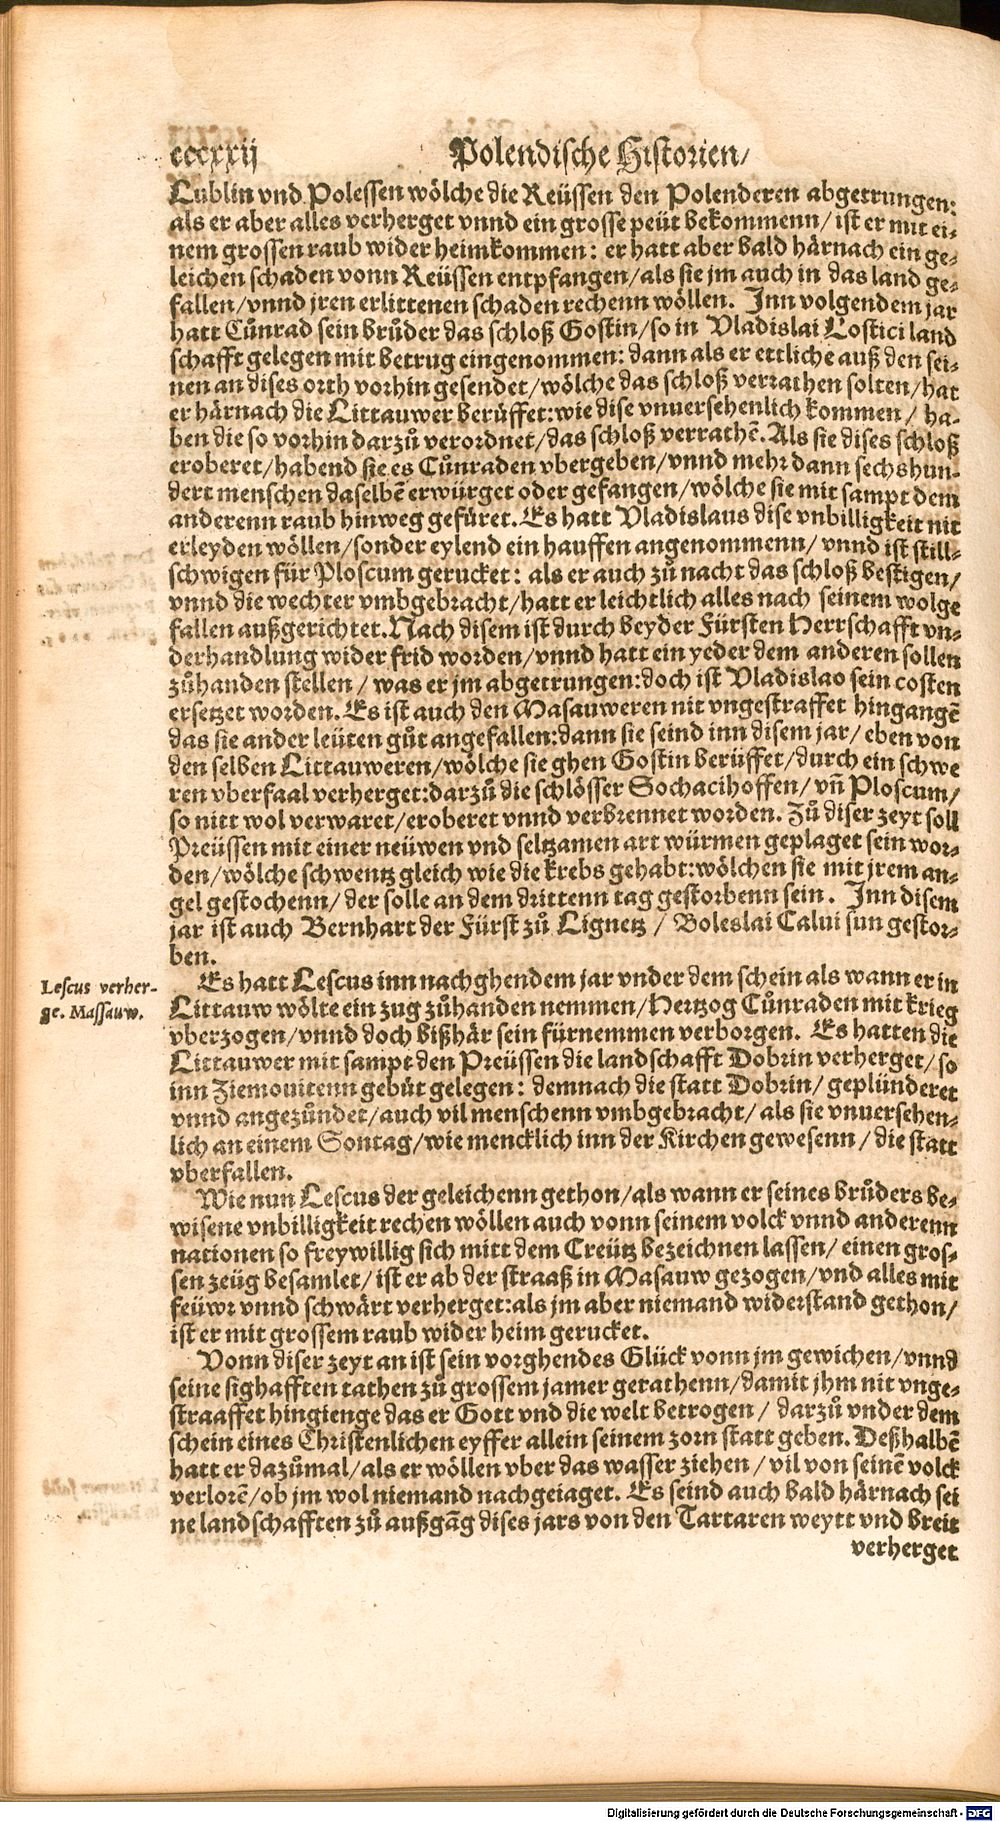 ccccxxij Polendische Historien/
Lublin vnd Polessen wölche die Reüssen den Polenderen abgetrungen:
als er aber alles verherget vnnd ein grosse peüt bekommenn/ ist er mit ei-
nem grossen raub wider heimkommen: er hatt aber bald härnach ein ge-
leichen schaden vonn Reüssen entpfangen/als sie jm auch in das land ge-
fallen/vnnd jren erlittenen schaden rechenn wöllen. Inn volgendem jar
hatt Cůnrad sein brůder das schloß Gostin/so in Vladislai Lostici land
schafft gelegen mit betrug eingenommen: dann als er ettliche auß den sei-
nen an dises orth vorhin gesendet/wölche das schloß verrathen solten/hat
er härnach die Littauwer berüffet:wie dise vnuersehenlich kommen/ ha-
ben die so vorhin darzů verordnet/das schloß verrathē. Als sie dises schloß
eroberet/habend sie es Cůnraden vbergeben/vnnd mehr dann sechshun-
dert menschen daselbē erwürget oder gefangen/wölche sie mit sampt dem
anderenn raub hinweg gefüret. Es hatt Vladislaus dise vnbilligkeit nit
erleyden wöllen/sonder eylend ein hauffen angenommenn/ vnnd ist still-
schwigen für Ploscum gerucket: als er auch zů nacht das schloß bestigen/
vnnd die wechter vmbgebracht/hatt er leichtlich alles nach seinem wolge
fallen außgerichtet. Nach disem ist durch beyder Fürsten Herrschafft vn-
derhandlung wider frid worden/vnnd hatt ein yeder dem anderen sollen
zůhanden stellen/ was er jm abgetrungen:doch ist Vladislao sein costen
ersetzet worden. Es ist auch den Masauweren nit vngestraffet hingangē
das sie ander leüten gůt angefallen:dann sie seind inn disem jar/ eben von
den selben Littauweren/wölche sie ghen Gostin berüffet/durch ein schwe
ren vberfaal verherget:darzů die schlösser Sochacihoffen/ vñ Ploscum/
so nitt wol verwaret/eroberet vnnd verbrennet worden. Zů diser zeyt soll
Preüssen mit einer neüwen vnd seltzamen art würmen geplaget sein wor-
den/wölche schwentz gleich wie die krebs gehabt:wölchen sie mit jrem an-
gel gestochenn/ der solle an dem drittenn tag gestorbenn sein. Inn disem
jar ist auch Bernhart der Fürst zů Lignetz/ Boleslai Calui sun gestor-
ben.
Lescus verher-
ge. Massauw.
Es hatt Lescus inn nachghendem jar vnder dem schein als wann er in
Littauw wölte ein zug zůhanden nemmen/Hertzog Cůnraden mit krieg
vberzogen/vnnd doch bißhär sein fürnemmen verborgen. Es hatten die
Littauwer mit sampt den Preüssen die landschafft Dobrin verherget/so
inn Ziemouitenn gebůt gelegen: demnach die statt Dobrin/ geplünderet
vnnd angezündet/auch vil menschenn vmbgebracht/ als sie vnuersehen-
lich an einem Sontag/wie mencklich inn der Kirchen gewesenn/ die statt
vberfallen.
Wie nun Lescus der geleichenn gethon/als wann er seines brůders be-
wisene vnbilligkeit rechen wöllen auch vonn seinem volck vnnd anderenn
nationen so freywillig sich mitt dem Creütz bezeichnen lassen/ einen gros-
sen zeüg besamlet/ ist er ab der straaß in Masauw gezogen/vnd alles mit
feüwr vnnd schwärt verherget:als jm aber niemand widerstand gethon/
ist er mit grossem raub wider heim gerucket.
Vonn diser zeyt an ist sein vorghendes Glück vonn jm gewichen/vnnd
seine sighafften tathen zů grossem jamer gerathenn/damit jhm nit vnge-
straaffet hingienge das er Gott vnd die welt betrogen/ darzů vnder dem
schein eines Christenlichen eyffer allein seinem zorn statt geben. Deßhalbē
hatt er dazůmal/als er wöllen vber das wasser ziehen/ vil von seinē volck
verlorē/ob jm wol niemand nachgeiaget. Es seind auch bald härnach sei
ne landschafften zů außgāg dises jars von den Tartaren weytt vnd breit
verherget
Digitalisierung gefördert durch die Deutsche Forschungsgemeinschaft - DFG